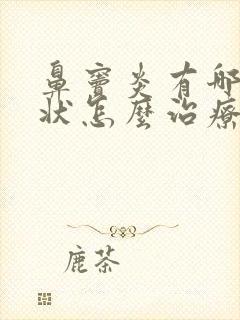 鼻窦炎有哪
状怎麼治療
鹿茶